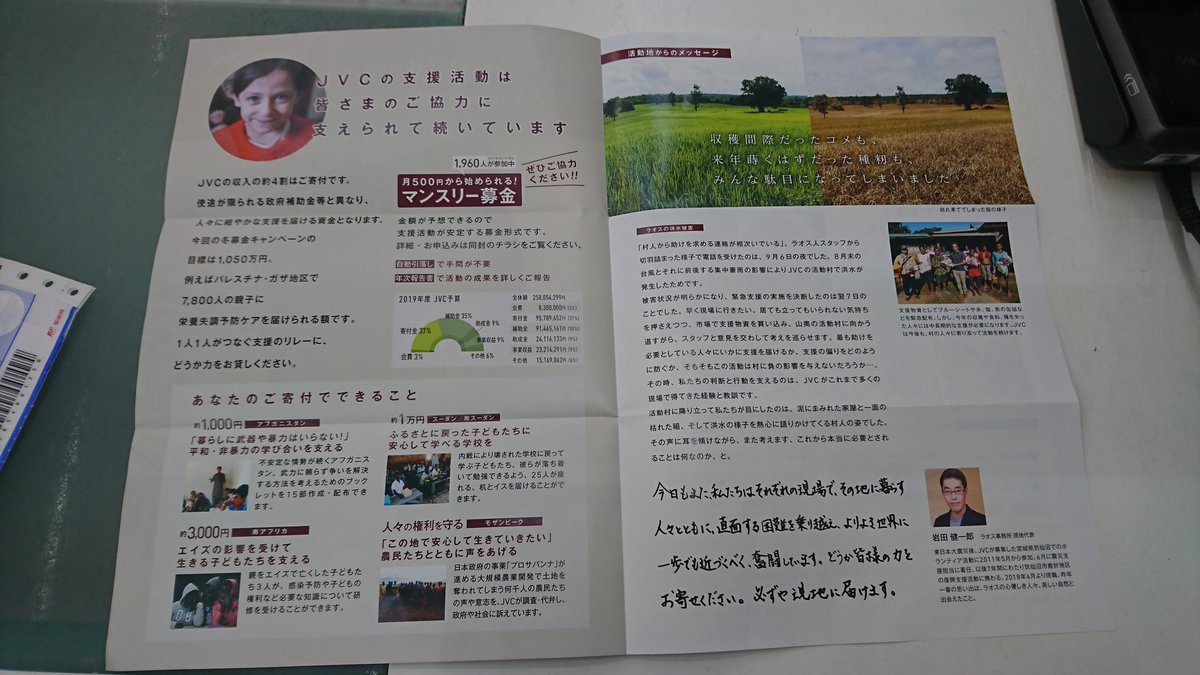 JVCの支援活動は
皆さまのご協力に
支えられて続いています
JVCの収入の約4割はご寄付です。
使途が限られる政府補助金等と異なり、
人々に細やかな支援を届ける資金となります。
今回の冬募金キャンペーンの
目標は1,050万円。
例えばパレスチナ・ガザ地区で
7,800人の親子に
栄養失調予防ケアを届けられる額です。
1人1人がつなぐ支援のリレーに、
どうか力をお貸しください。
1,960人が参加中
ぜひご協力
ください!!
月500円から始められる!
マンスリー募金
金額が予想できるので
支援活動が安定する募金形式です。
詳細・お申込みは同封のチラシをご覧ください。
自動引落しで手間が不要
年次報告書で活動の成果を詳しくご報告
2019年度 JVC予算
寄付金 37%
補助金 35%
助成金 9%
事業収益 9%
その他 6%
会費 3%
全体額 258,054,299円
会費 8,300,000円 (3%)
寄付金 95,789,652円 (37%)
補助金 91,465,161円 (35%)
助成金 24,116,133円 (9%)
事業収益 23,214,291円 (9%)
その他 15,169,062円 (6%)
あなたのご寄付でできること
約1,000円 アフガニスタン
「暮らしに武器や暴力はいらない!」
平和・非暴力の学び合いを支える
不安定な情勢が続くアフガニス
タン。武力に頼らず争いを解決
する方法を考えるためのブック
レットを15部作成・配布でき
ます。
約3,000円 南アフリカ
エイズの影響を受けて
生きる子どもたちを支える
親をエイズで亡くした子どもた
ち3人が、感染予防や子どもの
権利など必要な知識について研
修を受けることができます。
約1万円 スーダン 南スーダン
ふるさとに戻った子どもたちに
安心して学べる学校を
内戦により壊された学校に戻って
学ぶ子どもたち。彼らが落ち着
いて勉強できるよう、25人が座
れる、机とイスを届けることがで
きます。
人々の権利を守る モザンビーク
「この地で安心して生きていきたい」
農民たちとともに声をあげる
日本政府の事業「プロサバンナ」が
進める大規模農業開発で土地を
奪われてしまう何千人の農民たち
の声や意志を、JVCが調査・代弁し、
政府や社会に訴えています。
活動地からのメッセージ
収穫間際だったコメも、
来年蒔くはずだった種籾も、
みんな駄目になってしまいました
枯れ果ててしまった稲の様子
ラオスの洪水被害
「村人から助けを求める連絡が相次いでいる」、ラオス人スタッフから
切羽詰まった様子で電話を受けたのは、9月6日の夜でした。8月末の
台風とそれに前後する集中豪雨の影響によりJVCの活動村で洪水が
発生したためです。
被害状況が明らかになり、緊急支援の実施を決断したのは翌7日の
ことでした。早く現場に行きたい、居ても立ってもいられない気持ち
を押さえつつ、市場で支援物資を買い込み、山奥の活動村に向かう
道すがら、スタッフと意見を交わして考えを巡らせます。最も助けを
必要としている人々にいかに支援を届けるか、支援の偏りをどのよう
に防ぐか、そもそもこの活動は村に負の影響を与えないだろうか…。
その時、私たちの判断と行動を支えるのは、JVCがこれまで多くの
現場で得てきた経験と教訓です。
活動村に降り立って私たちが目にしたのは、泥にまみれた家屋と一面の
枯れた稲、そして洪水の様子を熱心に語りかけてくる村人の姿でした。
その声に耳を傾けながら、また考えます、これから本当に必要とされ
ることは何なのか、と。
支援物資としてブルーシートや米、塩、魚の缶詰など
を緊急配布。しかし、今年の収穫や食料、種を失っ
た人々には中長期的な支援が必要になります。JVC
は今後も、村の人々に寄り添って活動を続けます。
今日もまた、私たちはそれぞれの現場で、その地に暮らす
人々とともに、直面する困難を乗り越え、よりよき世界に
一歩でも近づくべく、奮闘しています。どうか皆様の力を
お寄せください。必ずや現地に届けます。
岩田 健一郎 ラオス事務所 現地代表
東日本大震災後、JVCが募集した宮城県気仙沼でのボ
ランティア活動に2011年5月から参加。6月に震災支
援担当に着任、以後7年間にわたり気仙沼市鹿折地区
の復興支援活動に携わる。2018年4月より現職。昨年
一番の思い出は、ラオスの心優しき人々、美しい自然と
出会えたこと。